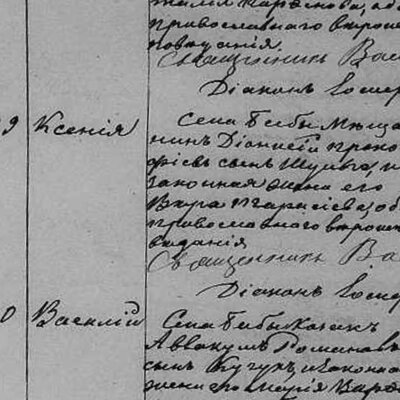 православнаго вѣроиспо
вѣданія
Священникъ Вас
Діаконъ Іосиф
9 Ксенія
Села Бабы Мѣща
нинъ Діонисій Проко
фіевъ сынъ Шульга, и
законная жена его
Вара Тарасіева, об
православнаго вѣроиспо
веданія
Священникъ Ва
Діаконъ
0 Василій
Села Бабы казакъ
Аввакумъ Романовъ
сынъ Кугук, и законна
жена его Марія